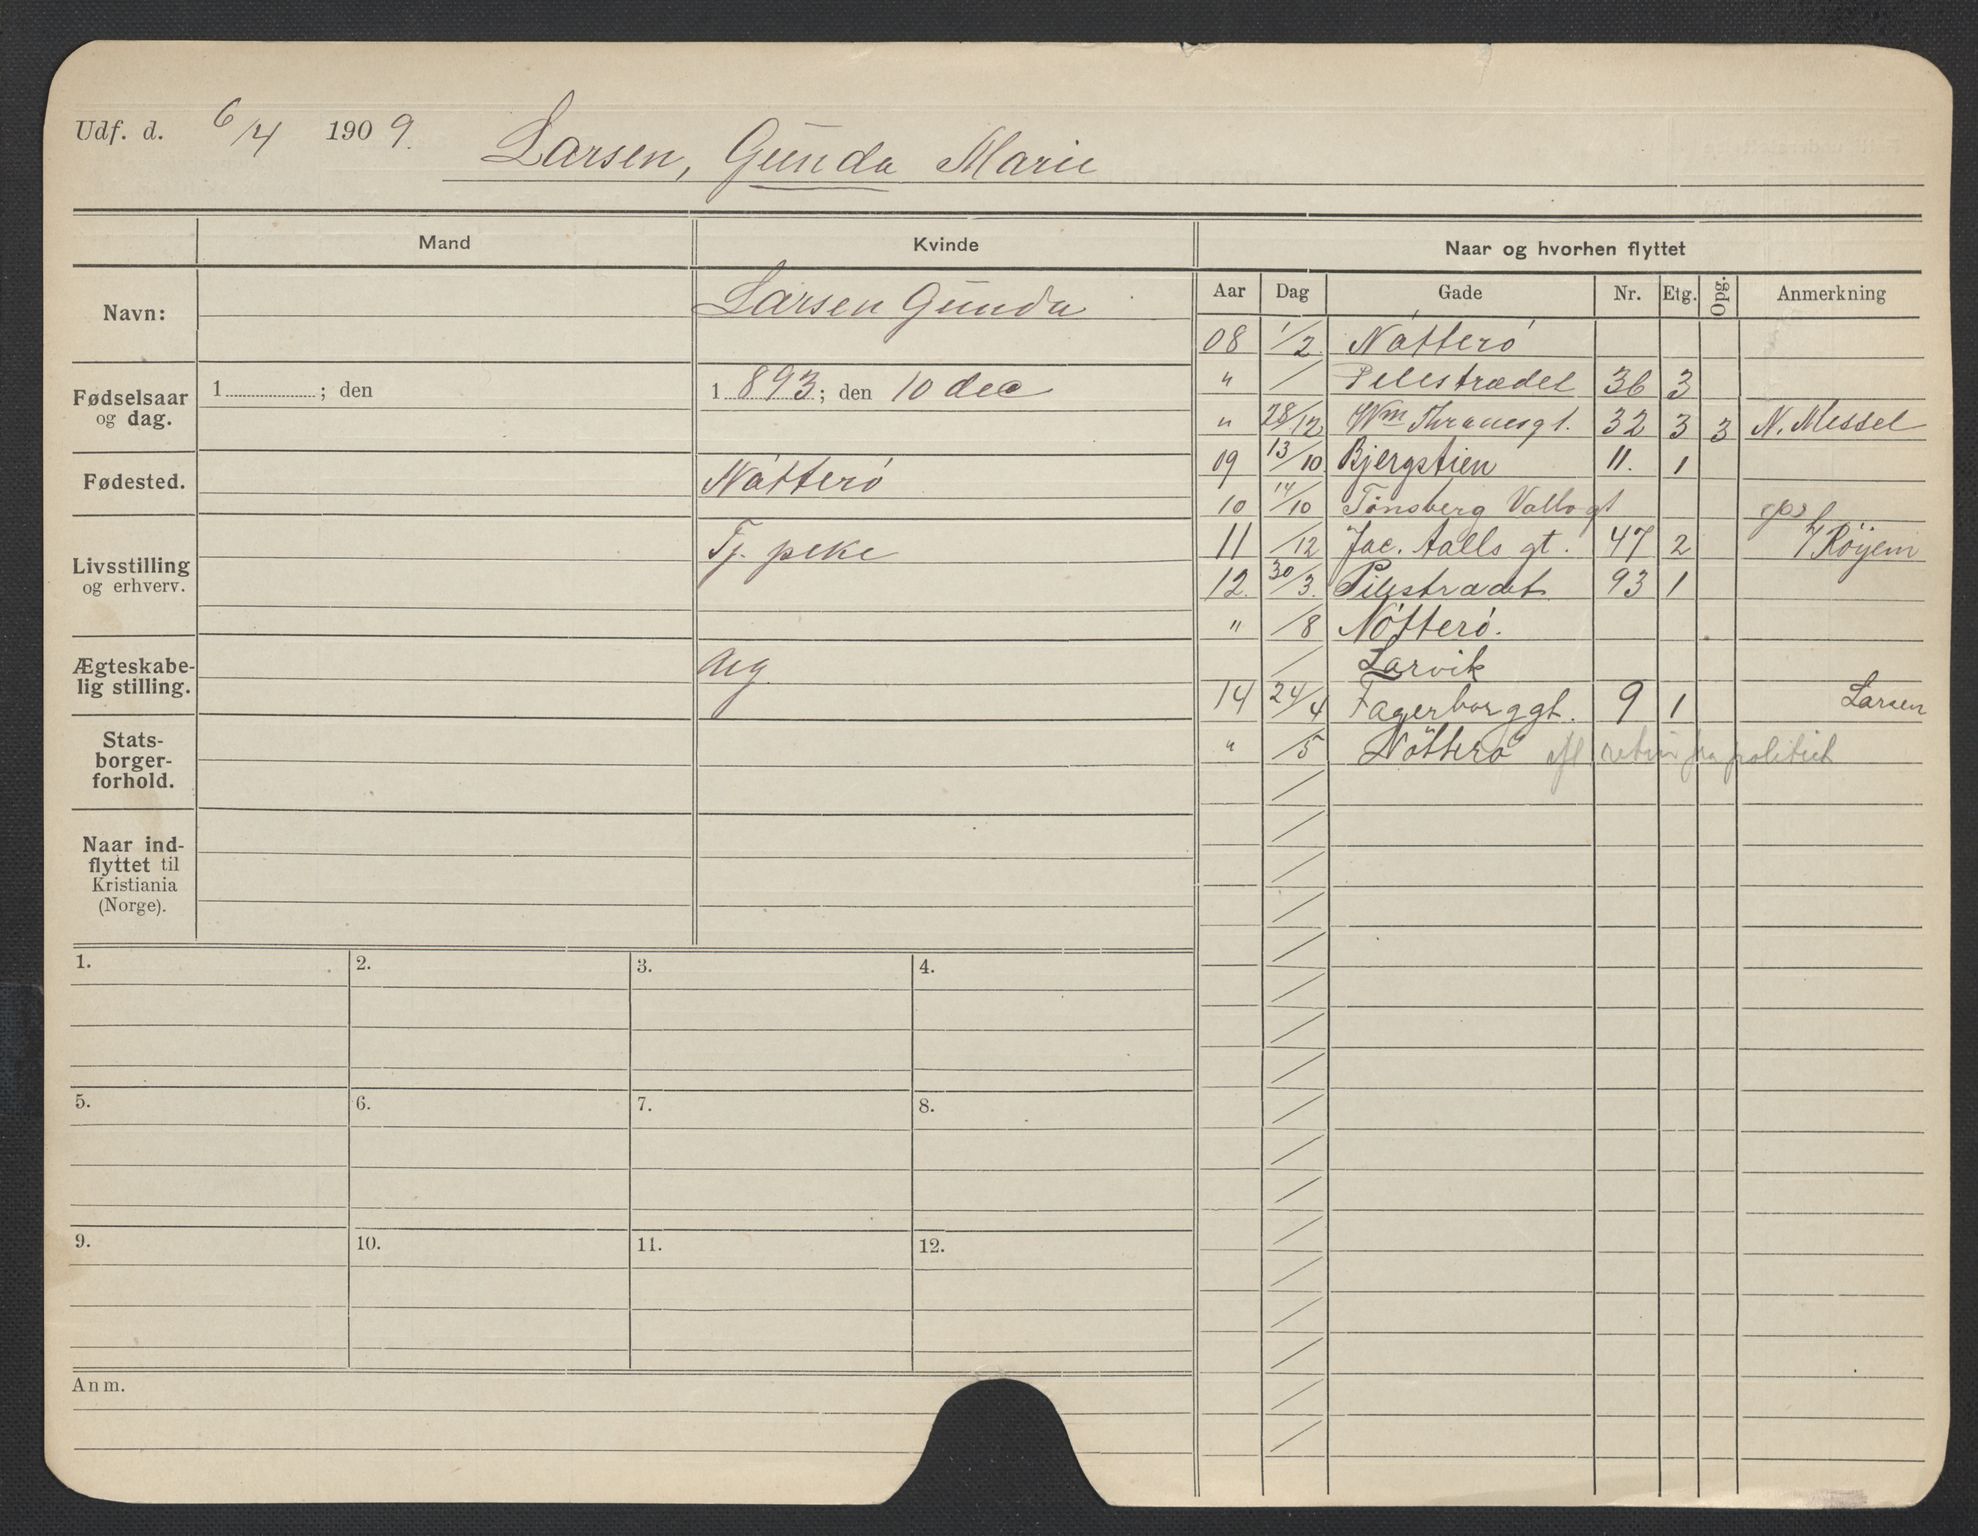 Udf. d. 6/4 1909. Larsen, Gunda Marie
Mand
Kvinde
Naar og hvorhen flyttet
Navn:
Larsen Gunda
Fødselsaar og dag.
1 ; den
1 893; den 10 dec
Fødested.
Nøtterø
Livsstilling og erhverv.
Tj. pike
Ægteskabe-
lig stilling.
ug
Stats-
borger-
forhold.
Naar ind-
flyttet til
Kristiania
(Norge).
Aar Dag Gade Nr. Etg. Opg. Anmerkning
08 1/2 Nøtterø
" / Pilestrædet 36 3
" 28/12 Wm Thranesgt. 32 3 3 N. Messel
09 13/10 Bjergstien 11. 1
10 14/10 Tønsberg
11 /12 Jac. Aalls gt. 47 2 Røyem
12. 30/3. Pilestrædet 93 1
" /8 Nøtterø.
/ Larvik
14 24/4 Fagerborggt. 9 1 Larsen
" /5 Nøtterø retur fra politiet
1.
2.
3.
4.
5.
6.
7.
8.
9.
10.
11.
12.
Anm.